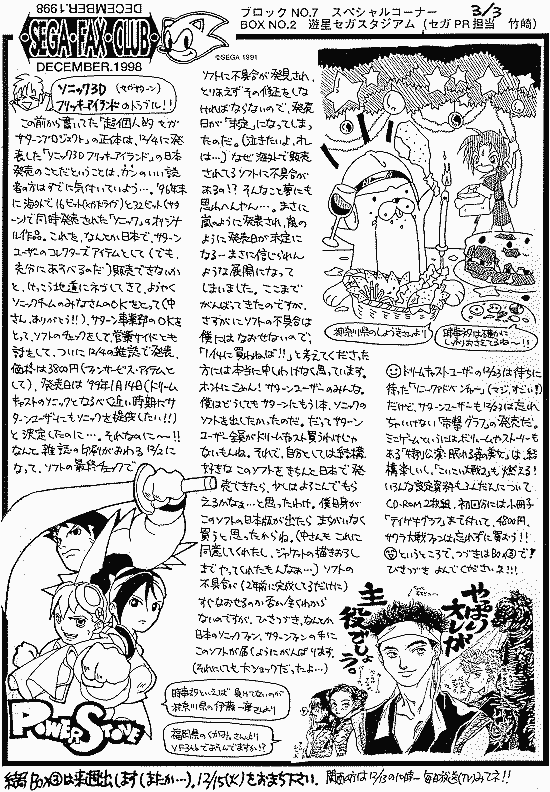 ブロックNO.7 スペシャルコーナー 3/3
BOX NO.2 遊星セガスタジアム (セガPR担当 竹崎)
DECEMBER.1998
・SEGA・FAX・CLUB・
DECEMBER.1998
©SEGA 1991
ソニック3D (セガサターン)
フリッキーアイランドのトラブル!!
この前から書いてた「超個人的セガ
サターンプロジェクト」の正体は、12/4に発
表した「ソニック3Dフリッキーアイランド」の日本
発売のことだということは、カンのいい読
者の方はすでに気付いていよう…。'96年末
に海外で16ビット(メガドライブ)と32ビット(サタ
ーン)で同時発売された「ソニック」のオリジナ
ル作品。これを、なんとか日本で、サターン
ユーザーのコレクターズアイテムとして(でも、
充分にあそべるのだ)販売できないか
と、けっこう地道にネゴしてきて、ようやく
ソニックチームのみなさんのOKをとって(中
さん、ありがとう!!)、サターン事業部のOKを
とって、ソフトのチェックをして、営業サイドとも
話をして、ついに12/4の雑誌で発表、
価格は3800円(ファンサービス・アイテムと
して)、発売日は'99年1月14日(ドリーム
キャストのソニックとなるべく近い時期にサ
ターンユーザーにもソニックを提供したい!!)
と決定したのに…。それなのに〜!!
なんと雑誌の印刷がおわる12/2に
なって、ソフトの最終チェックで
ソフトに不具合が発見され、
とりあえずその修正をしな
ければならないので、発売
日が「未定」になってしまっ
たのだ。(泣きたいよ、オレ
は…)なぜ海外で販売
されてるソフトに不具合が
あるの!? そんなこと夢にも
思わへんやん…。まさに
嵐のように発表され、嵐の
ように発売日が未定に
なる…まさに信じられん
ような展開になって
しまいました。ここまで
がんばってきたのですが、
さすがにソフトの不具合は
僕にはなおせないので、
「1/14に買わねば!!」と考えてくださった
方には本当に申しわけなく思っています。
ホントにごめん!サターンユーザーのみんな。
僕はどうしてもサターンにもう1本、ソニックの
ソフトを出したかったのだ。だってサターン
ユーザー全員がドリームキャスト買うわけじゃ
ないもんね。それで、自分としては結構
好きなこのソフトをきちんと日本で発
売できたら、少しはよろこんでもら
えるかなぁ…と思ったわけ。僕自身が
このソフトの日本版が出たらまちがいなく
買うと思ったからね。(中さんもこれに
同意してくれたし、ジャケットの描きおろし
までやってくれたもんなぁ…) ソフトの
不具合が(2年前に完成してるだけに)
すぐなおせるのか否か全くわから
ないのですが、ひきつづき、なんとか
日本のソニックファン、サターンファンの手に
このソフトが届くようにがんばります。
(それにしても大ショックだったよ…)
神奈川県のしょうきさんより
ドリームキャストユーザーの12/23は待ちに
待った「ソニックアドベンチャー」(マジ、すごい!)
だけど、サターンユーザーも12/23は忘れ
ちゃいけない「帝撃グラフ」の発売だ。
ミニゲームというには、ボリュームやストーリーも
ある「特別公演・眠れる森の美女」は、結
構楽しく、「こいこい大戦2」も燃える!
いろんな設定資料もふんだんについて
CD-ROM 2枚組、初回分には小冊子
「テイゲキグラフ」まで付いて、4800円。
サクラ大戦ファンは忘れずに買おう!!
というところで、つづきはBox③で!
ひきつづき よんでくださいネ!!!
やっぱり オレが
主役でしょう。
POWER STONE
福岡県のくがりんさんより
VF3tbであそんでますか!?
続きBox③は来週出します(またか…)。12/15(火)をおまち下さい。